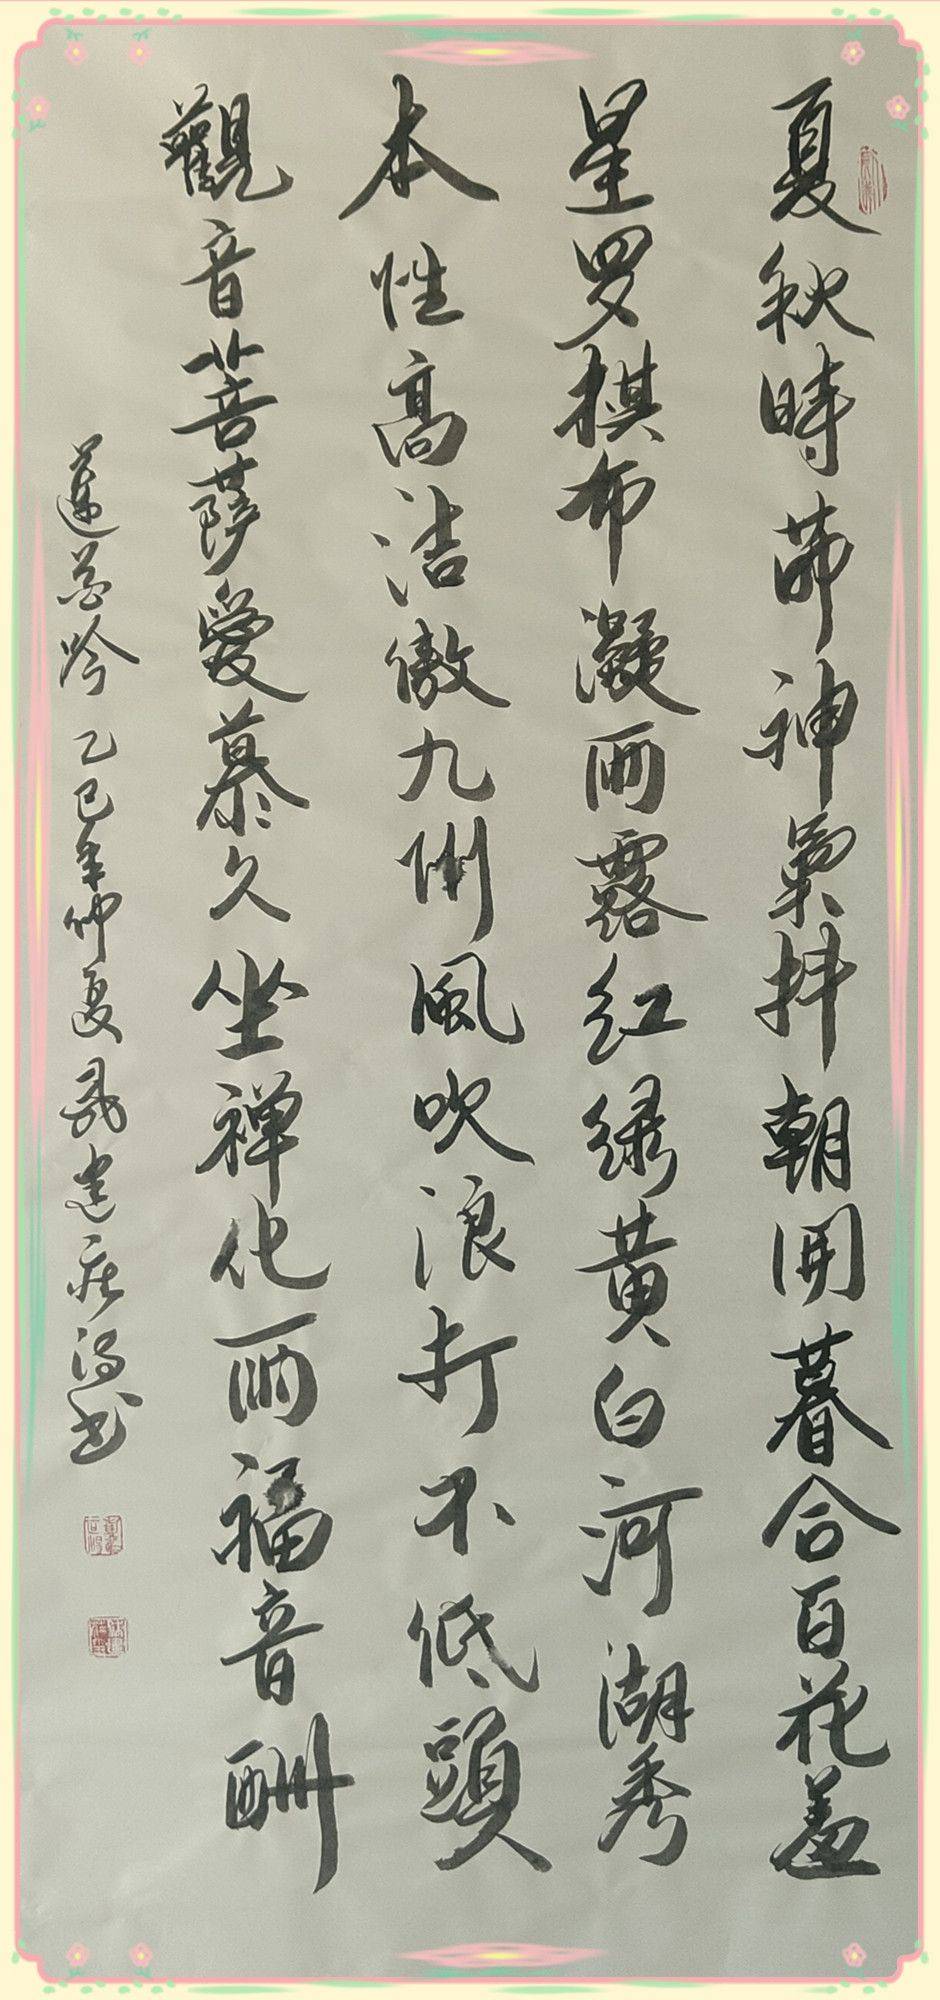 夏秋時節神氣抖朝開暮合百花羞
星罗棋布凝雨露红绿黄白河湖秀
本性高洁傲九州風吹浪打不低頭
觀音菩薩愛慕久坐禅化雨福音酬
蓮花吟 乙巳年仲夏 建 书